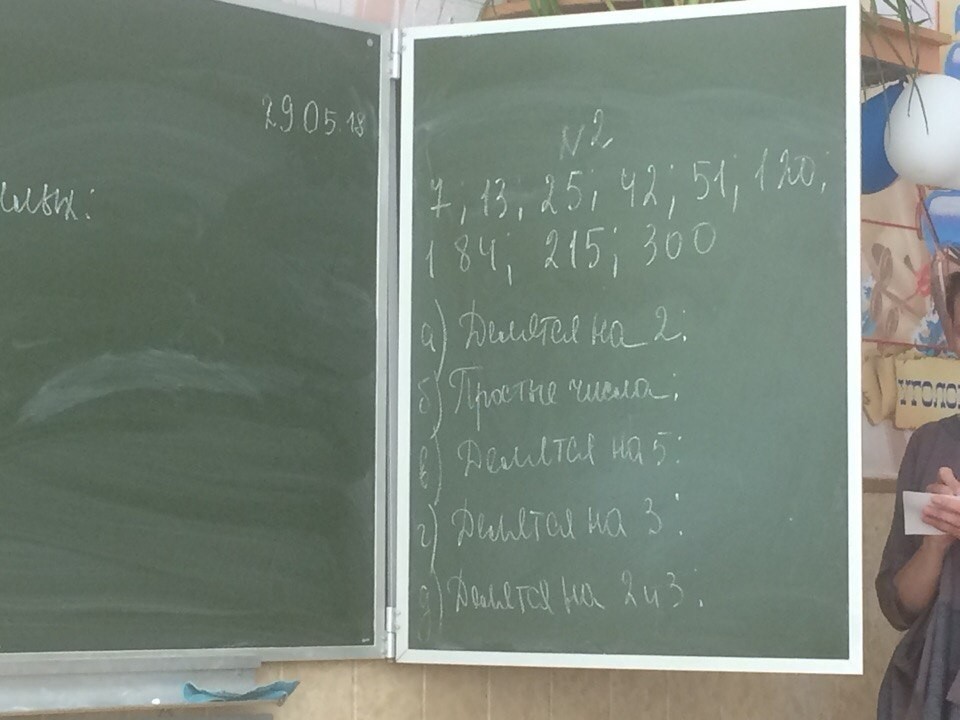 29 05.18
N2
7; 13; 25; 42; 51; 120;
184; 215; 300
а) Делятся на 2:
б) Простые числа:
в) Делятся на 5:
г) Делятся на 3:
д) Делятся на 2 и 3: